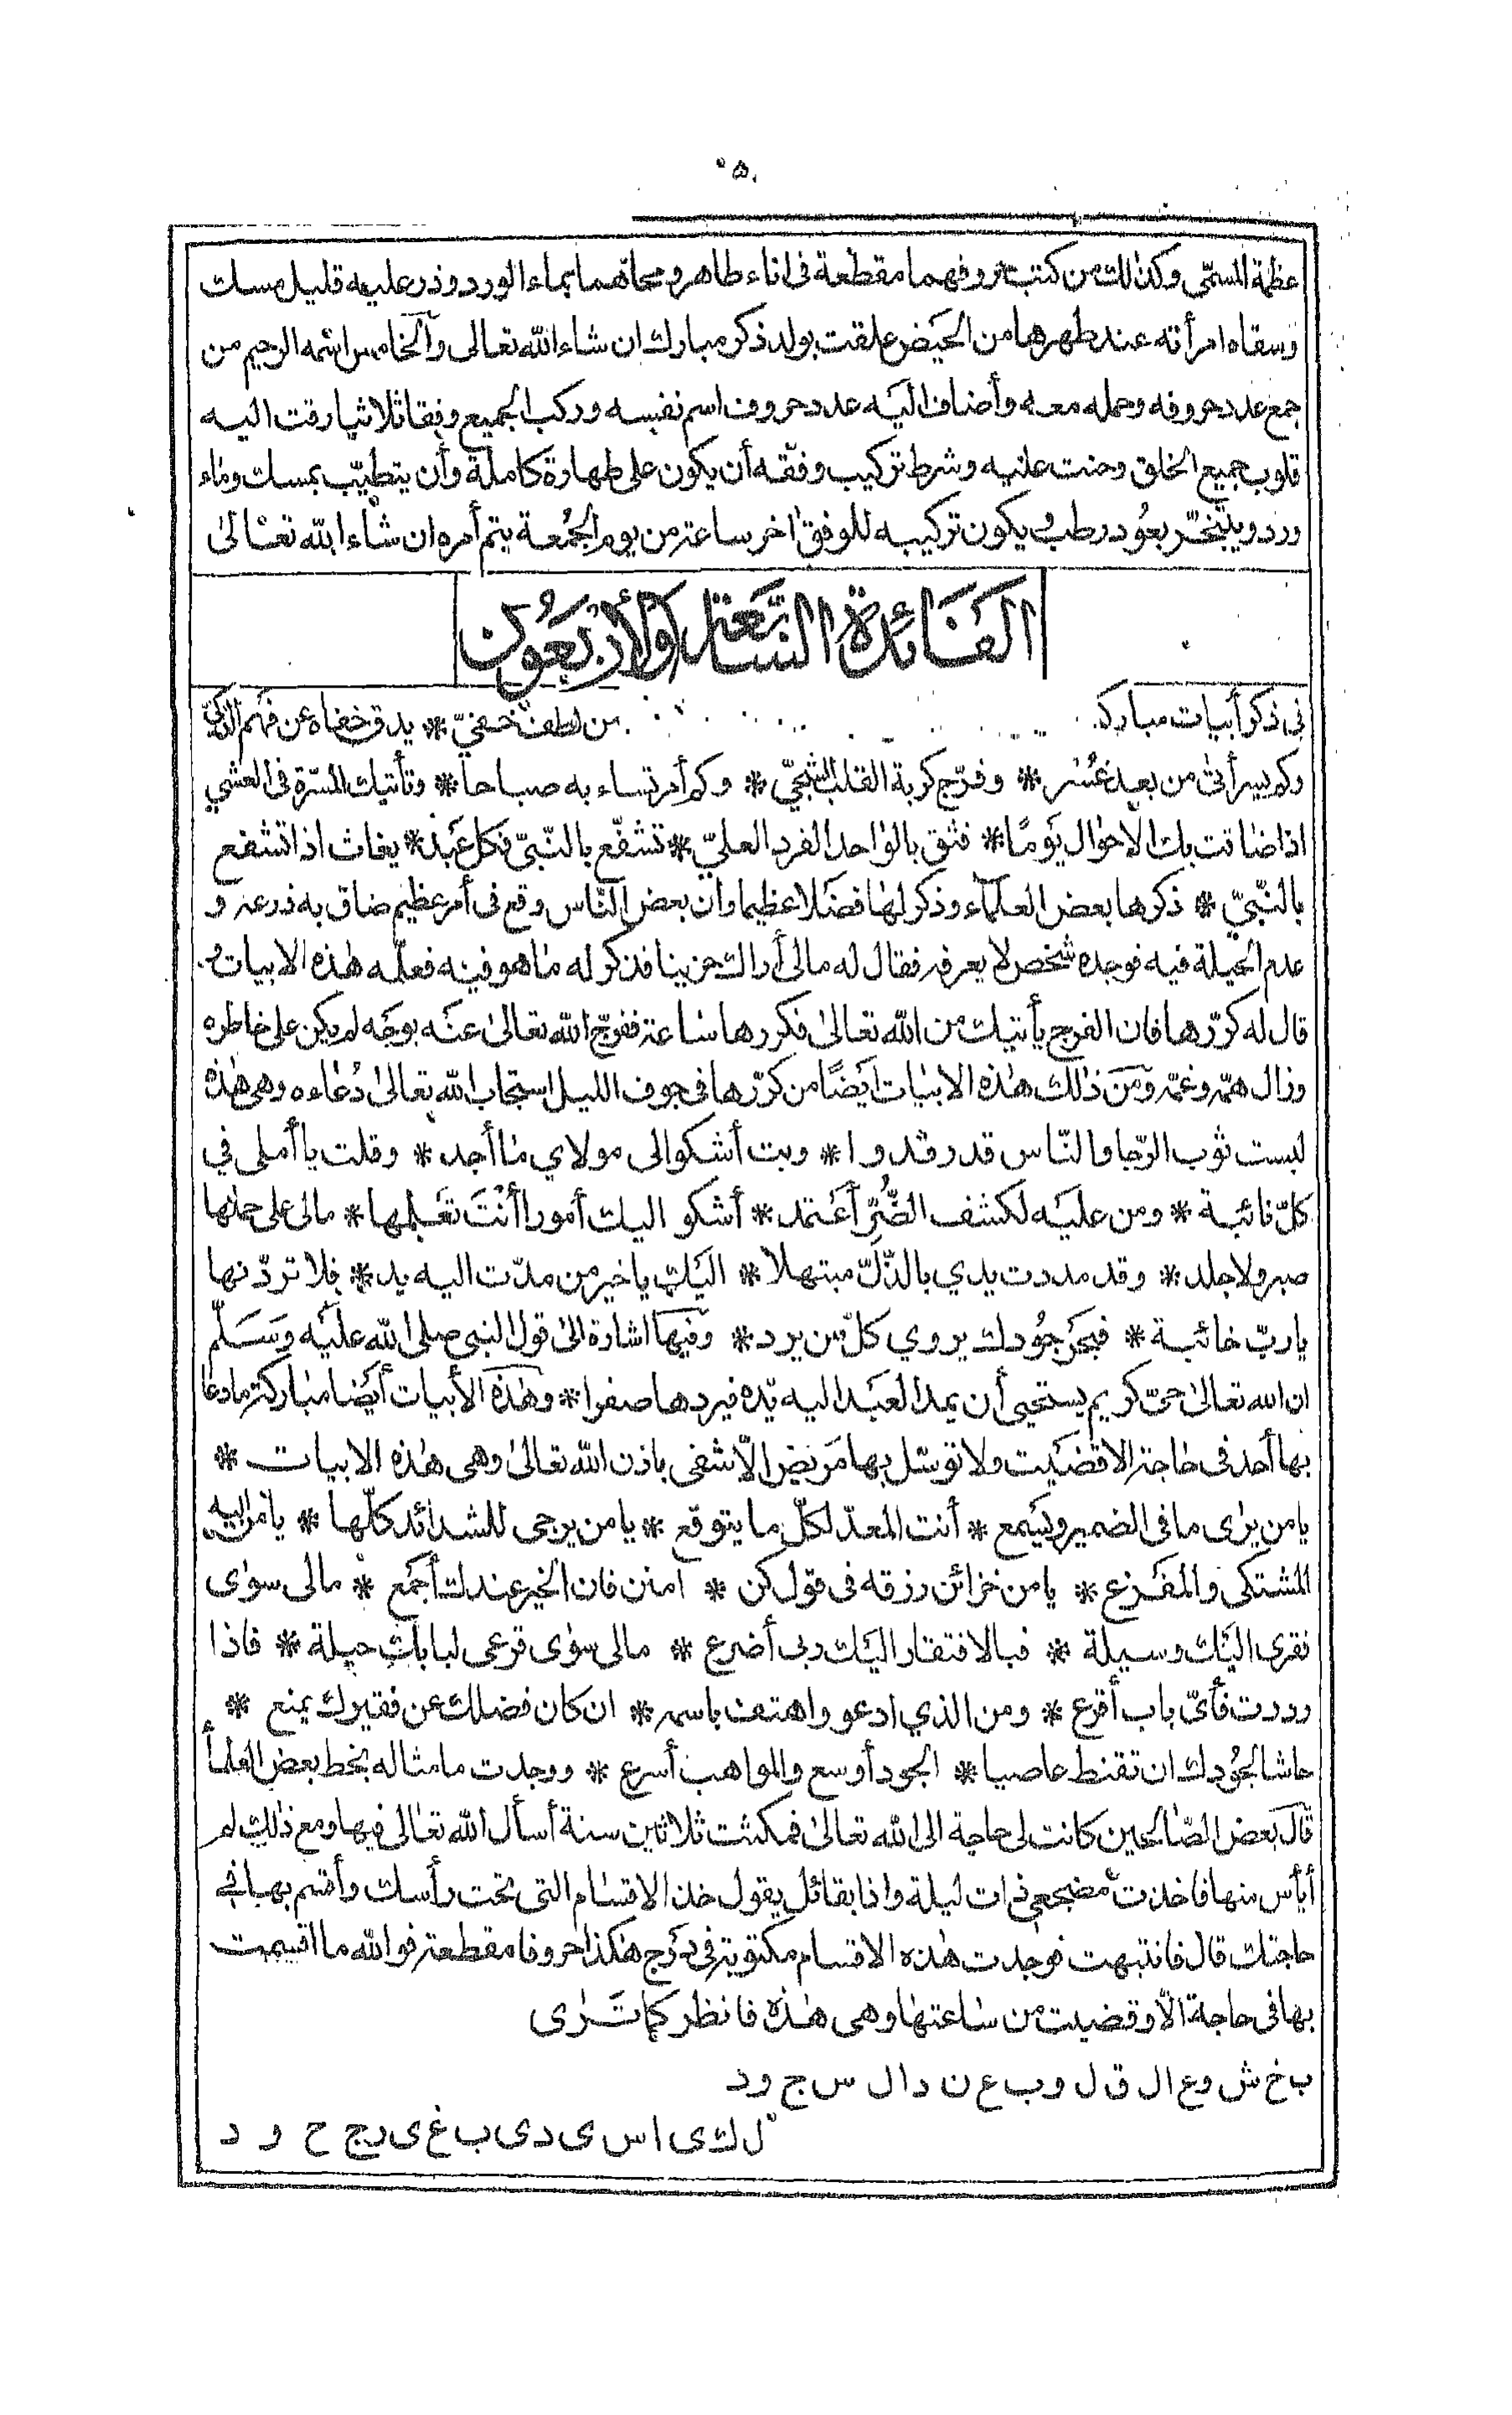 ٥٠
عظمة المسمّى وكذلك من كتب حروفهما مقطعة فى اناء طاهر ومحاهما بماء الورد وذر عليه قليل مسك
وسقاه امرأته عند طهرها من الحيض علقت بولد ذكر مبارك ان شاء الله تعالى والخامس اسمه الرحيم من
جمع عدد حروفه وحمله معه وأضاف اليه عدد حروف اسم نفسه وركب الجميع وفقا ثلاثيا رقت اليه
قلوب جميع الخلق وحنت عليه وشرط تركيب وفقه أن يكون على طهارة كاملة وأن يتطيّب بمسك وماء
ورد ويتبخّر بعود رطب ويكون تركيبه للوفق اخر ساعة من يوم الجمعة يتم أمره ان شاء الله تعالى
الفائدة التاسعة والأربعون
فى ذكر أبيات مباركة من لطف خفيّ * يدق خفاه عن فهم الذكيّ
وكم يسر أتى من بعد عسر * وفرّج كربة القلب الشجيّ * وكم أمر تساء به صباحا * وتأتيك المسرّة فى العشي
اذا ضاقت بك الاحوال يومًا * فثق بالواحد الفرد العليّ * تشفّع بالنّبيّ فكل عبد * يغاث اذا تشفع
بالنّبيّ * ذكرها بعض العلماء وذكر لها فضلا عظيما وان بعض النّاس وقع فى أمر عظيم ضاق به ذرعه و
عدم الحيلة فيه فوجده شخص لا يعرفه فقال له مالى أراك حزينا فذكر له ما هو فيه فعلّمه هذه الابيات و
قال له كرّرها فان الفرج يأتيك من الله تعالى فكررها ساعة ففرّج الله تعالى عنه بوجه لم يكن على خاطره
وزال همّه وغمّه ومن ذلك هذه الابيات ايضًا من كرّرها فى جوف الليل استجاب الله تعالى دعاءه وهى هذه
لبست ثوب الرّجا والنّاس قد رقدوا * وبت أشكو الى مولاي ما أجد * وقلت يا أملى في
كلّ نائبة * ومن عليه لكشف الضُّرّ أعتمد * أشكو اليك أمورا أنْتَ تعلمها * مالى على حملها
صبر ولا جلد * وقد مددت يدي بالذّلّ مبتهلا * اليك يا خير من مدّت اليه يد * فلا تردّنها
يا ربّ خائبة * فبحر جودك يروي كلّ من يرد * وفيها اشارة الى قول النبى صلى الله عليه وَسَلّم
ان الله تعالى حىّ كريم يستحيى أن يمد العبد اليه يده فيردها صفرا * وهذه الأبيات أيضا مباركة ما دعا
بها أحد فى حاجة الا قضيت ولا توسّل بها مريض الّا شفى باذن الله تعالى وهى هذه الابيات *
يا من يرى ما فى الضمير ويسمع * أنت المعدّ لكلّ ما يتوقع * يا من يرجى للشدائد كلّها * يا من اليه
المشتكى والمفزع * يا من خزائن رزقه فى قول كن * امنن فان الخير عندك أجمع * مالى سوى
فقرى اليك وسيلة * فبالافتقار اليك ربى أضرع * مالى سوى قرعى لبابك حيلة * فاذا
رددت فأىّ باب أقرع * ومن الذي ادعو واهتف باسمه * ان كان فضلك عن فقيرك يمنع *
حاشا لجودك ان تقنط عاصيا * الجود أوسع والمواهب أسرع * ووجدت ما مثاله بخط بعض العلماء
قال بعض الصّالحين كانت لى حاجة الى الله تعالى فمكثت ثلاثين سنة أسأل الله تعالى فيها ومع ذلك لم
أيأس منها فاخذت مضجعى ذات ليلة واذا بقائل يقول خذ الاقسام التى تحت رأسك وأقسم بها فى
حاجتك قال فانتبهت فوجدت هذه الاقسام مكتوبة فى درج هكذا حروفا مقطعة فوالله ما اقسمت
بها فى حاجة الّا وقضيت من ساعتها وهى هذه فانظر كما تَرى
ب خ ش و ع ا ل ق ل و ب ع ن د ا ل س ج و د
ل ك ى ا س ى د ى ب غ ى ر ج ح و د